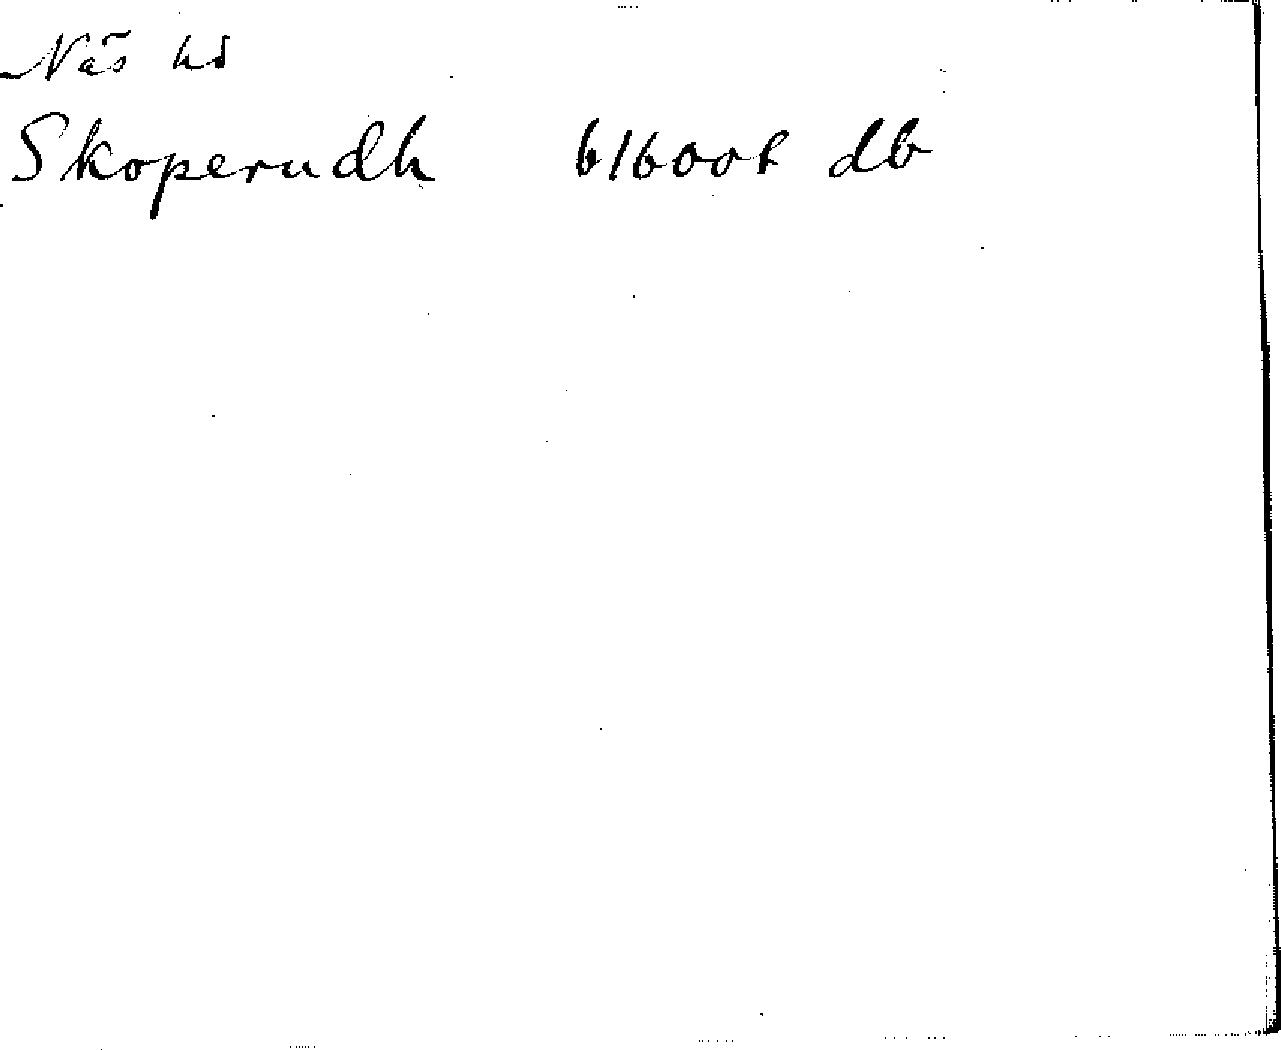 Näs hd
Skoperudh 6/6 00 f db